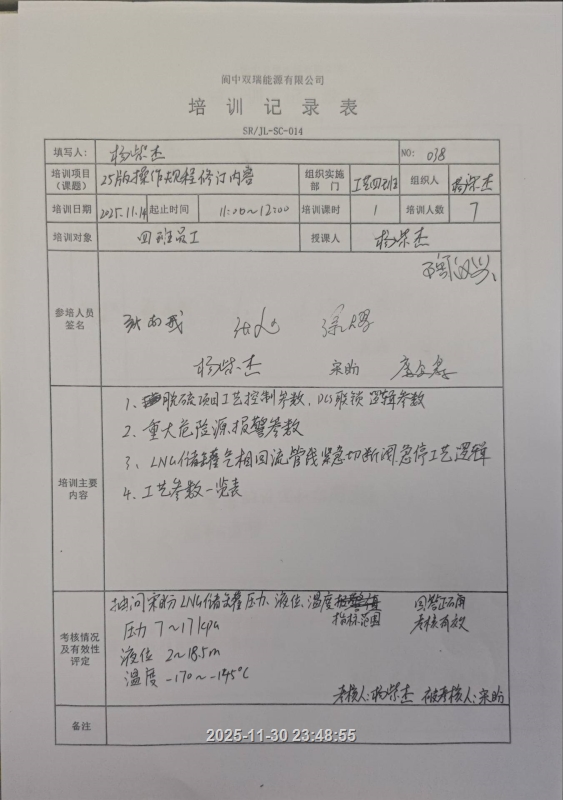 阆中双瑞能源有限公司
培训记录表
SR/JL-SC-014
填写人: 杨崇杰 NO: 038
培训项目(课题) 25版操作规程修订内容 组织实施部门 工艺四班 组织人 杨崇杰
培训日期 2025.11.14 起止时间 11:00~12:00 培训课时 1 培训人数 7
培训对象 四班员工 授课人 杨崇杰
参培人员签名
杨崇杰 宋盼
培训主要内容
1、脱硫项目工艺控制参数、DCS联锁逻辑参数
2、重大危险源报警参数
3、LNG储罐气相回流管线紧急切断阀急停工艺逻辑
4、工艺参数一览表
考核情况及有效性评定
抽问宋盼LNG储罐压力、液位、温度指标范围 回答正确
压力 7~17kpa 考核有效
液位 2~18.5m
温度 -170~-145℃
考核人:杨崇杰 被考核人:宋盼
备注
2025-11-30 23:48:55